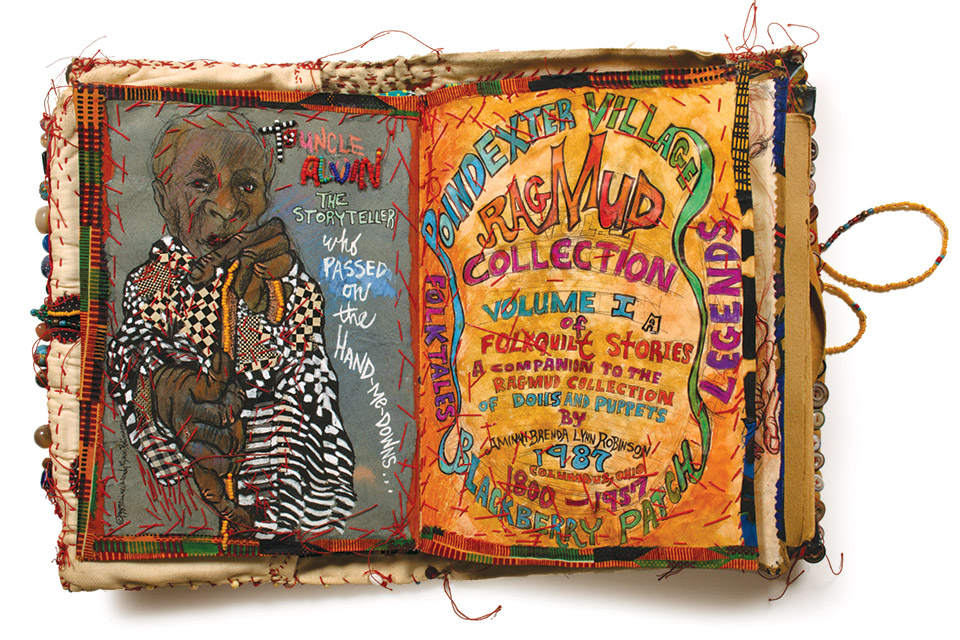 To UNCLE
ALVIN
THE
STORYTELLER
who
PASSED
on
the
HAND-Me-DOWNS...
POINDEXTER VILLAGE
RAGMUD
COLLECTION
VOLUME I
of A
FOLKQUILT STORIES
A COMPANION TO THE
RAGMUD COLLECTION
OF DOLLS AND PUPPETS
BY
AMINAH BRENDA LYNN ROBINSON
1987
COLUMBUS, OHIO
1800 — 1957
BLACKBERRY PATCH
FOLKTALES
LEGENDS